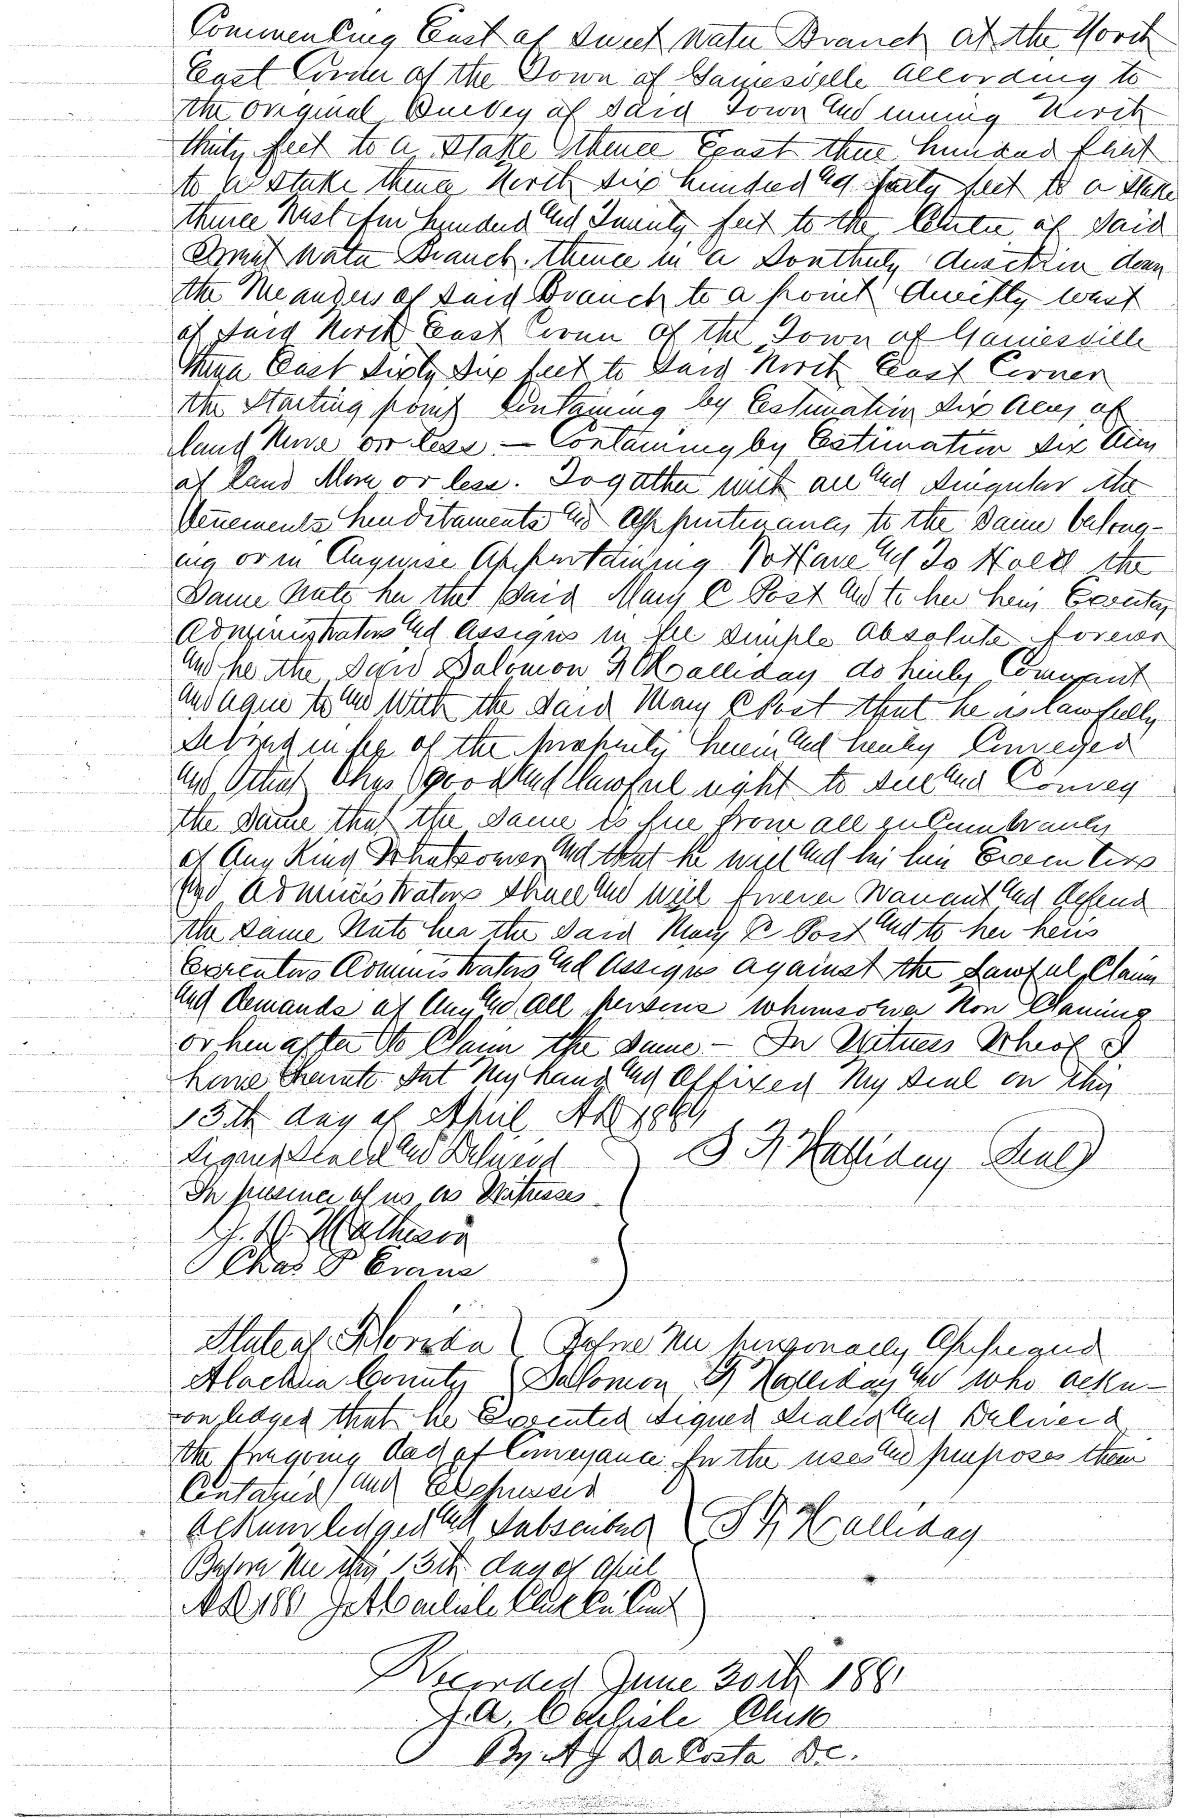 Commencing East of Sweet Water Branch at the North
East Corner of the Town of Gainesville according to
the original Survey of said Town and running North
thirty feet to a stake thence East three hundred feet
to a stake thence North six hundred and forty feet to a stake
thence West four hundred and Twenty feet to the Centre of said
Sweet Water Branch. thence in a Southerly direction down
the Meanders of said Branch to a point directly west
of said North East Corner of the Town of Gainesville
thence East Sixty Six feet to said North East Corner
the Starting point Containing by Estimation Six Acres of
land More or less - Containing by Estimation Six Acres
of land More or less. Togather with all and singular the
tenements hereditaments and appurtenances to the same belong-
ing or in Anywise Appertaining To Have and To Hold the
Same Unto her the said Mary C Post and to her heirs Executors
Administrators and assigns in fee simple absolute forever
and he the said Solomon F Halliday do hereby Covenant
and agree to and With the said Mary C Post that he is lawfully
seized in fee of the property herein and hereby Conveyed
and that has good and lawful right to sell and Convey
the same that the same is free from all enCumbrances
of Any Kind Whatsoever and that he will and his heirs Executors
and Administrators shall and will forever Warrant and defend
the same Unto her the said Mary C Post and to her heirs
Executors Administrators and assigns against the Lawful Claim
and demands of Any and all persons whomsoever Now Claiming
or hereafter to Claim the same - In Witness Wheof I
have hereunto Set My hand and Affixed My seal on this
13th day of April AD 1881
Signed Sealed and Delivered S F Halliday Seal
In presence of us as Witnesses
J. D. Matheson
Chas P Evans
State of Florida Before Me personally Appeared
Alachua County Solomon F Halliday and who ackn-
owledged that he Executed signed sealed and Delivered
the foregoing deed of Conveyance for the uses and purposes therein
Contained and Expressed
acknowledged and subscribed S F Halliday
Before Me this 13th day of April
AD 1881 J A Carlisle Clerk Cir Court
Recorded June 30th 1881
J. A. Carlisle Clerk
By A J Da Costa D.C.